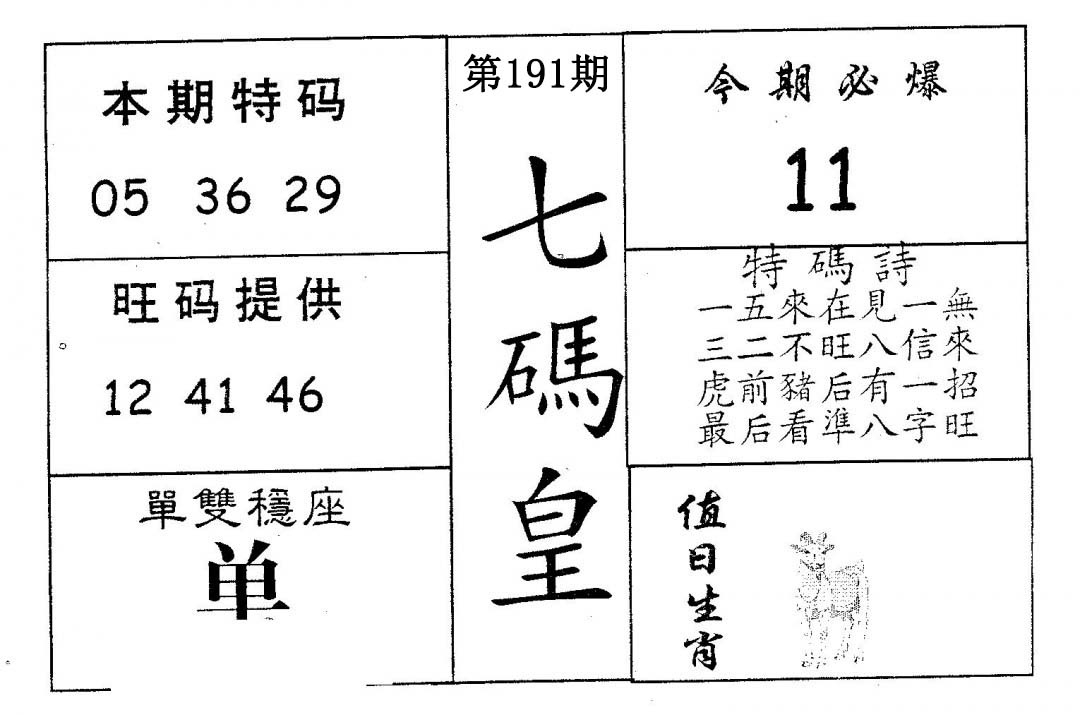 本期特码
05 36 29
旺码提供
12 41 46
單雙穩座
单
第191期
七碼皇
今期必爆
11
特碼詩
一五來在見一無
三二不旺八信來
虎前豬后有一招
最后看準八字旺
值日生肖